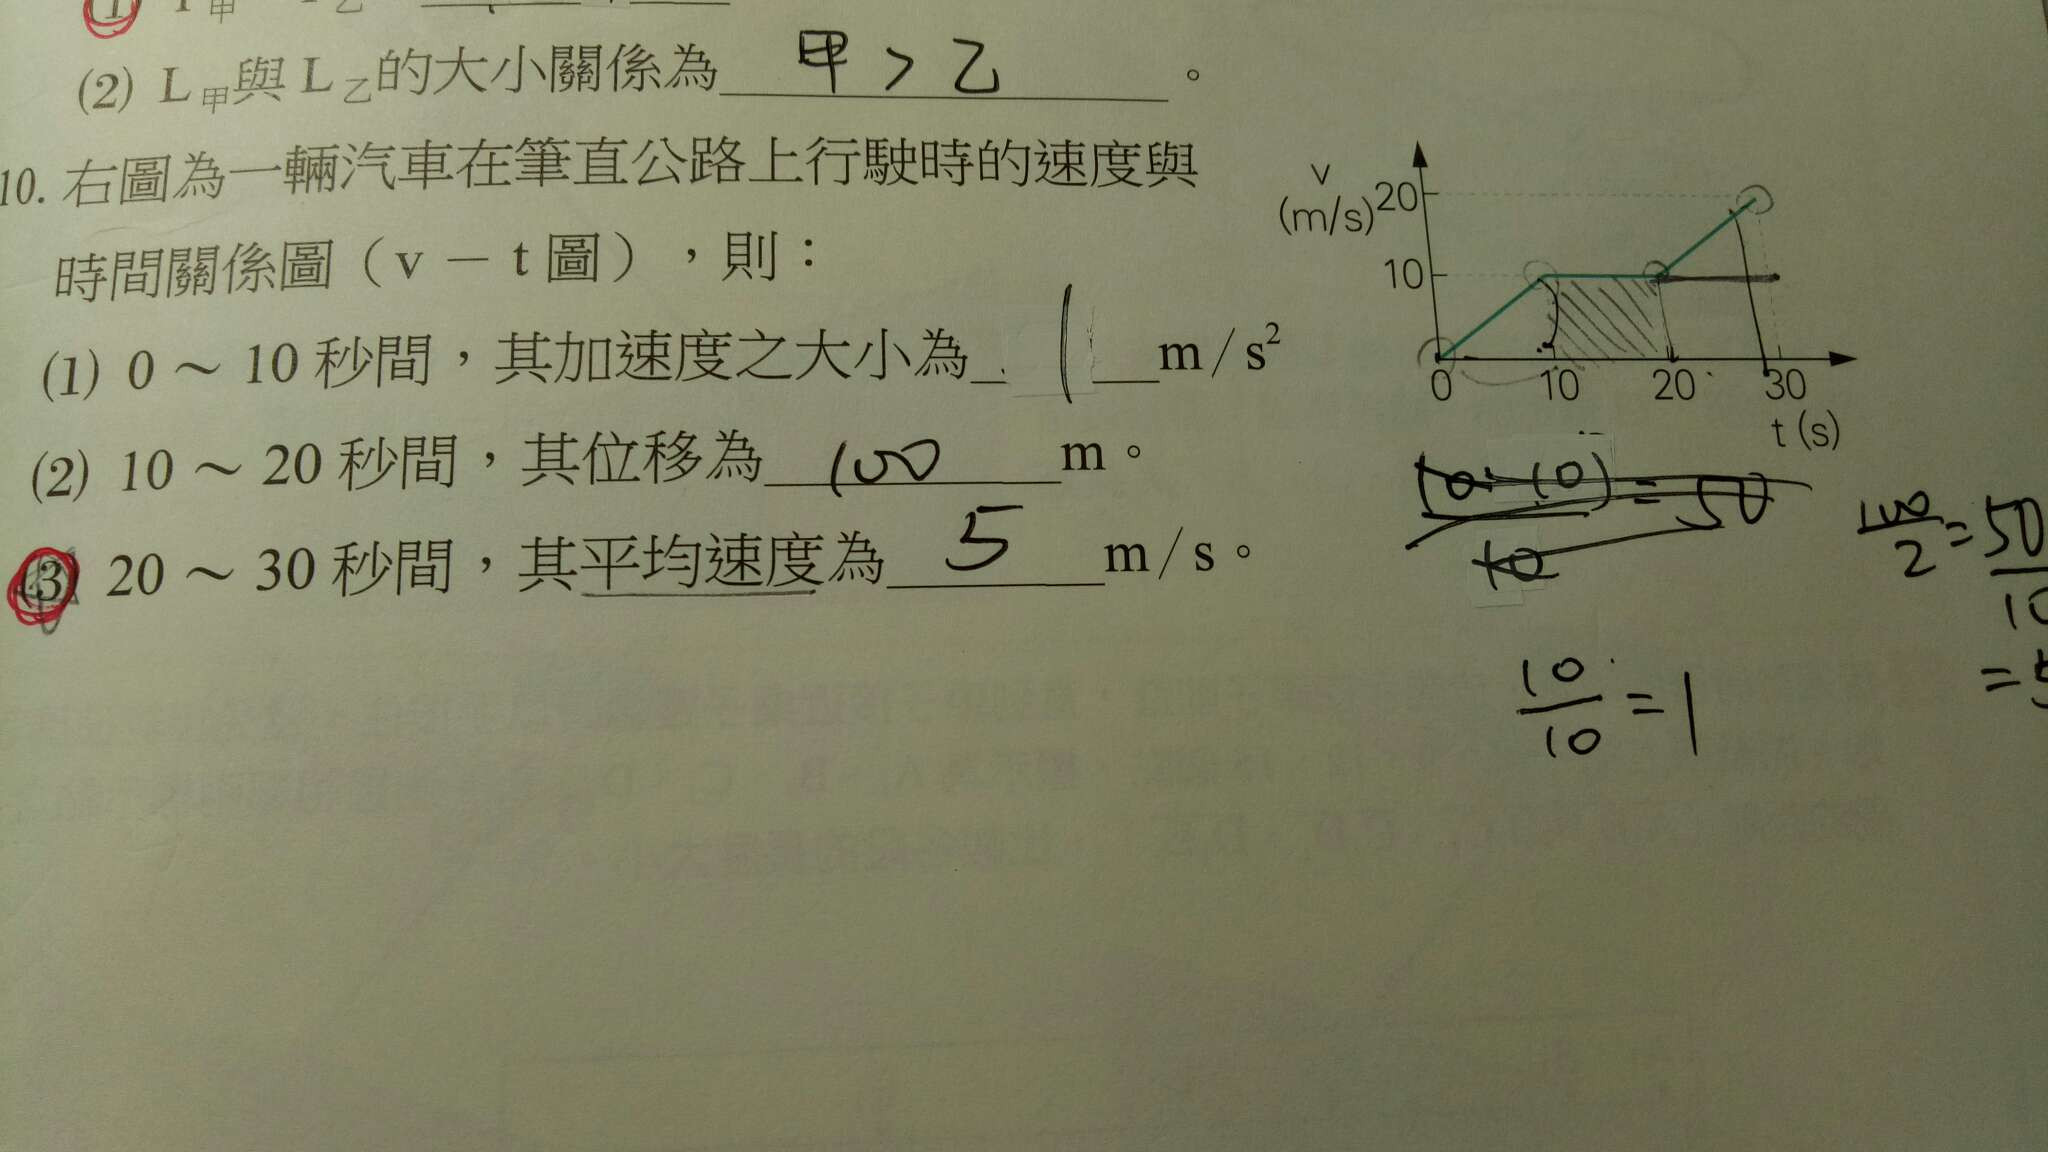 (1) 甲 乙
(2) L甲與L乙的大小關係為 甲 > 乙 。
10. 右圖為一輛汽車在筆直公路上行駛時的速度與
時間關係圖（v － t 圖），則：
(1) 0 ~ 10 秒間，其加速度之大小為 1 m / s²
(2) 10 ~ 20 秒間，其位移為 100 m。
(3) 20 ~ 30 秒間，其平均速度為 5 m / s。
v
(m/s)
20
10
0 10 20 30
t (s)
= 50
10
10/10 = 1
100/2 = 50
10
= 5